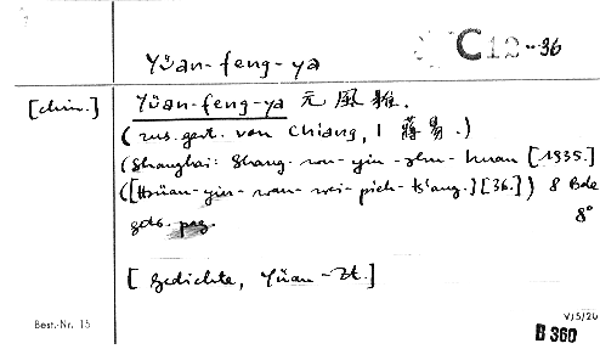 C12-36
Yüan-feng-ya
[chin.] Yüan-feng-ya 元風雅.
(zus.gest. von Chiang, I 蔣易.)
(Shanghai: Shang-wu-yin-shu-kuan [1935.]
([Hsüan-yin-wan-wei-pieh-ts'ang.][36.]) 8 Bde
8°
getr. pag.
[Gedichte, Yüan-Zt.]
Best.-Nr. 15
VJ5/26
B 360